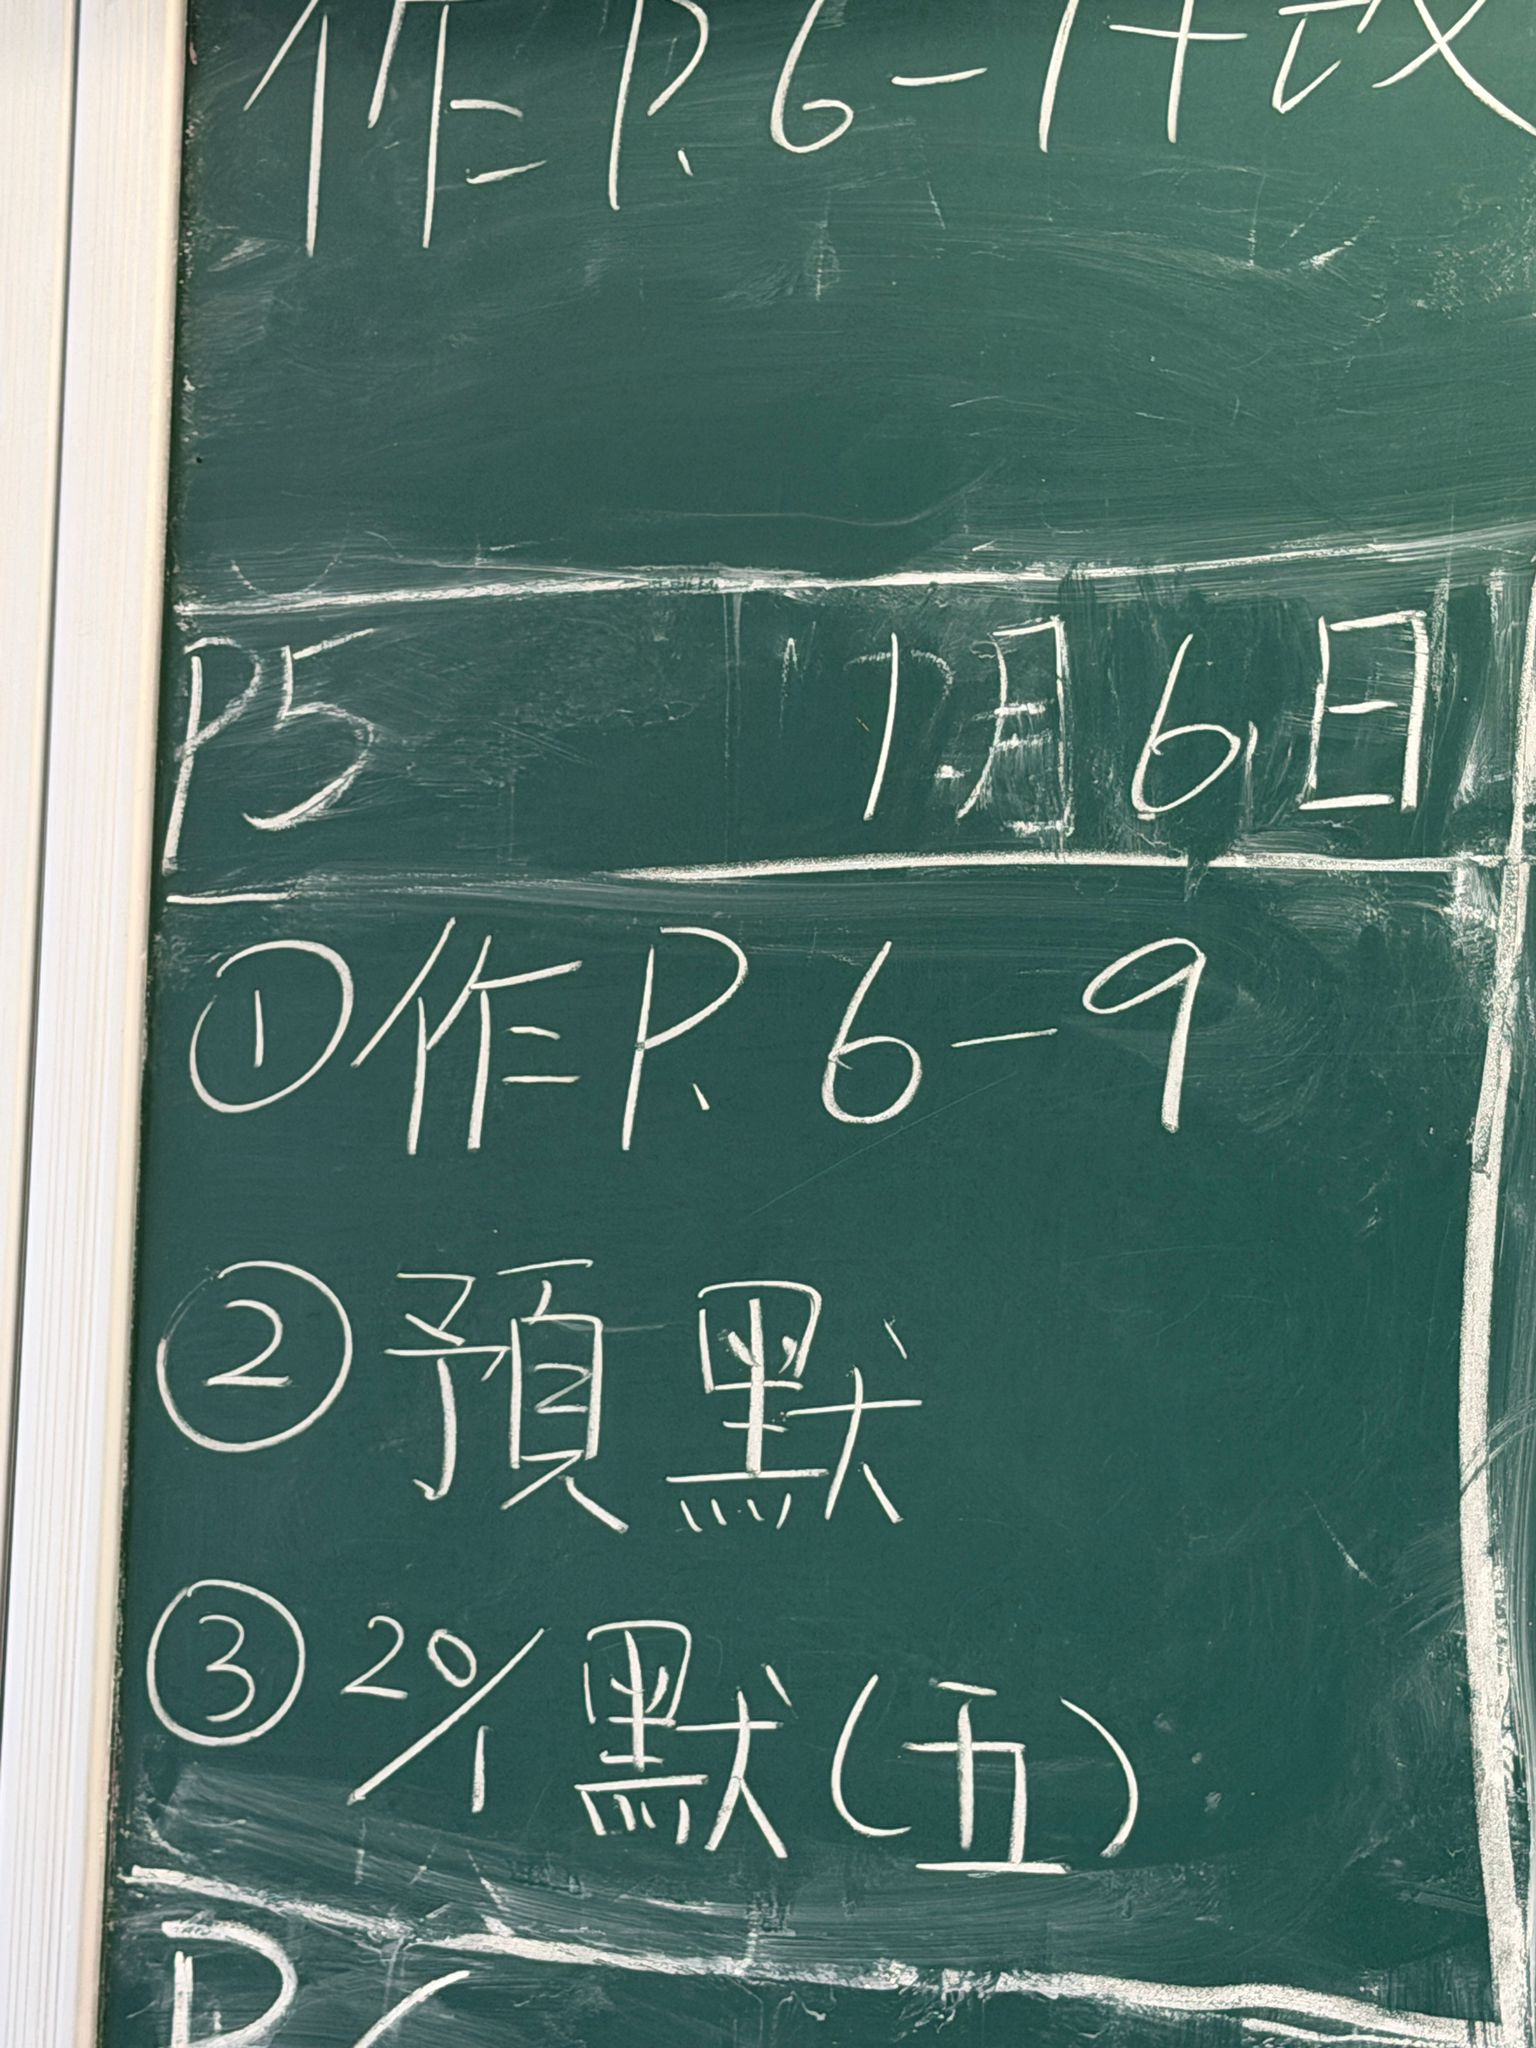 作P.6-14改
P5 1月6日
①作P.6-9
②預默
③20/1默(五)